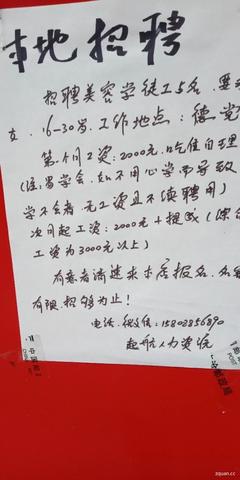 本地招聘
招聘美容学徒工5名.要
女.16-30岁.工作地点:德党
第一个月工资:2000元.吃住自理
(注:易学会.如不用心学而导致
学不会者.无工资且不续聘用)
次月起工资:2000元+提成(综合
工资为3000元以上)
有意者请速来本店报名.名额
有限.招够为止!
电话.微信:15808856890
起航人力资
zquan.cc